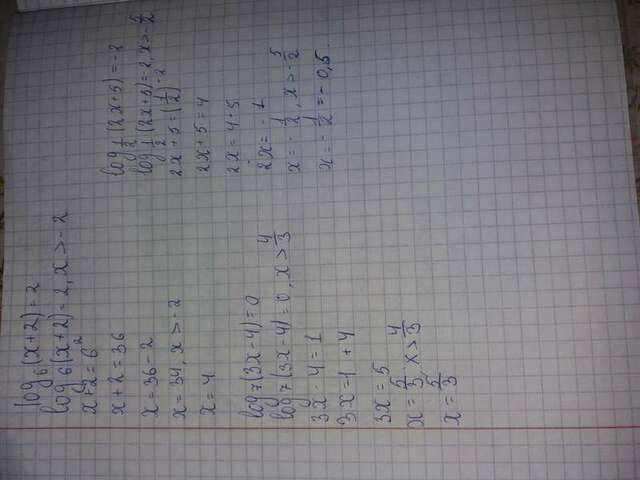 log₆(x+2)=2
log₆(x+2)=2, x>-2
x+2=6²
x+2=36
x=36-2
x=34, x>-2
x=4
log₇(3x-4)=0
log₇(3x-4)=0, x>4/3
3x-4=1
3x=1+4
3x=5
x=5/3, x>4/3
x=5/3
log_1/2(2x+5)=-2
log_1/2(2x+5)=-2, x>-5/2
2x+5=(1/2)⁻²
2x+5=4
2x=4-5
2x=-1
x=-1/2, x>-5/2
x=-1/2=-0,5.